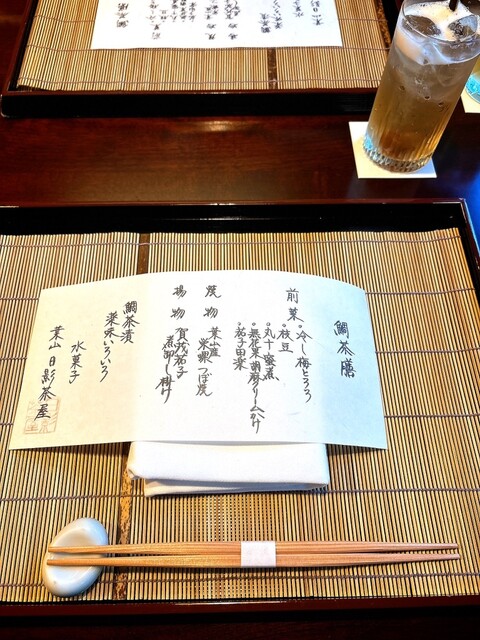 鯛茶膳
前菜・冷し梅とろろ
・枝豆
・丸十蜜煮
・無花果胡麻クリームかけ
・茄子田楽
焼物 葉山産
栄螺つぼ焼
揚物 賀茂茄子
煮卸し掛け
鯛茶漬
薬味いろいろ
水菓子
葉山日影茶屋